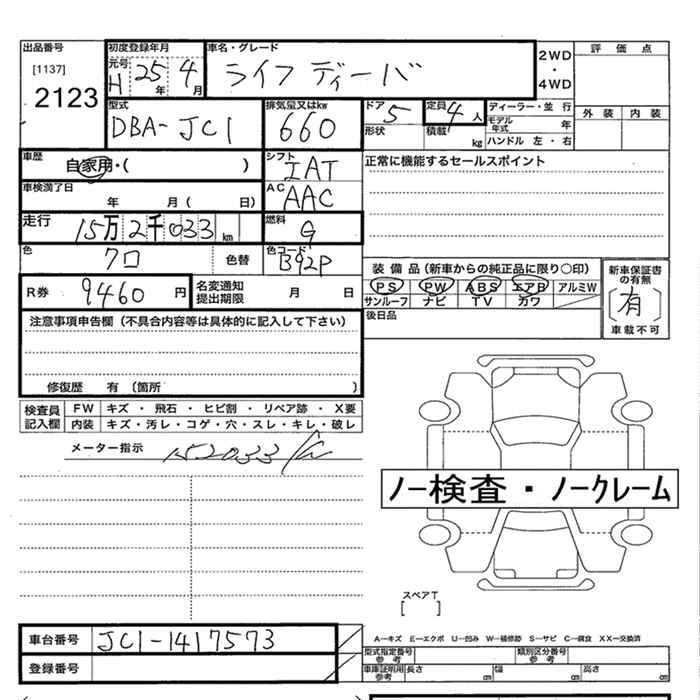 出品番号
[1137]
2123
初度登録年月
元号
H 25年 4月
車名・グレード
ライフ ディーバ
2WD
・
4WD
評価点
外装 内装
型式
DBA-JC1
排気量又はkw
660
ドア 5
形状
定員 4人
積載 kg
ディーラー・並行
モデル年式 年
ハンドル 左・右
車歴
自家用・( )
シフト
IAT
正常に機能するセールスポイント
車検満了日
年 月( 日)
AC
AAC
走行
15万2千033km
燃料
G
色
クロ
色替
色コード
B92P
R券 9460円
名変通知
提出期限
月 日
装備品(新車からの純正品に限り○印)
PS PW ABS エアB アルミW
サンルーフ ナビ TV カワ
新車保証書
の有無
[有]
車載不可
後日品
注意事項申告欄(不具合内容等は具体的に記入して下さい)
修復歴 有(箇所 )
検査員
記入欄
FW キズ・飛石・ヒビ割・リペア跡・X要
内装 キズ・汚レ・コゲ・穴・スレ・キレ・破レ
メーター指示 152033
ノー検査・ノークレーム
スペアT
[ ]
車台番号 JC1-1417573
登録番号
A―キズ E―エクボ U―凹み W―補修跡 S―サビ C―腐食 XX―交換済
型式指定番号
参考
類別区分番号
参考
車庫証明用
参考
長さ cm 幅 cm 高さ cm